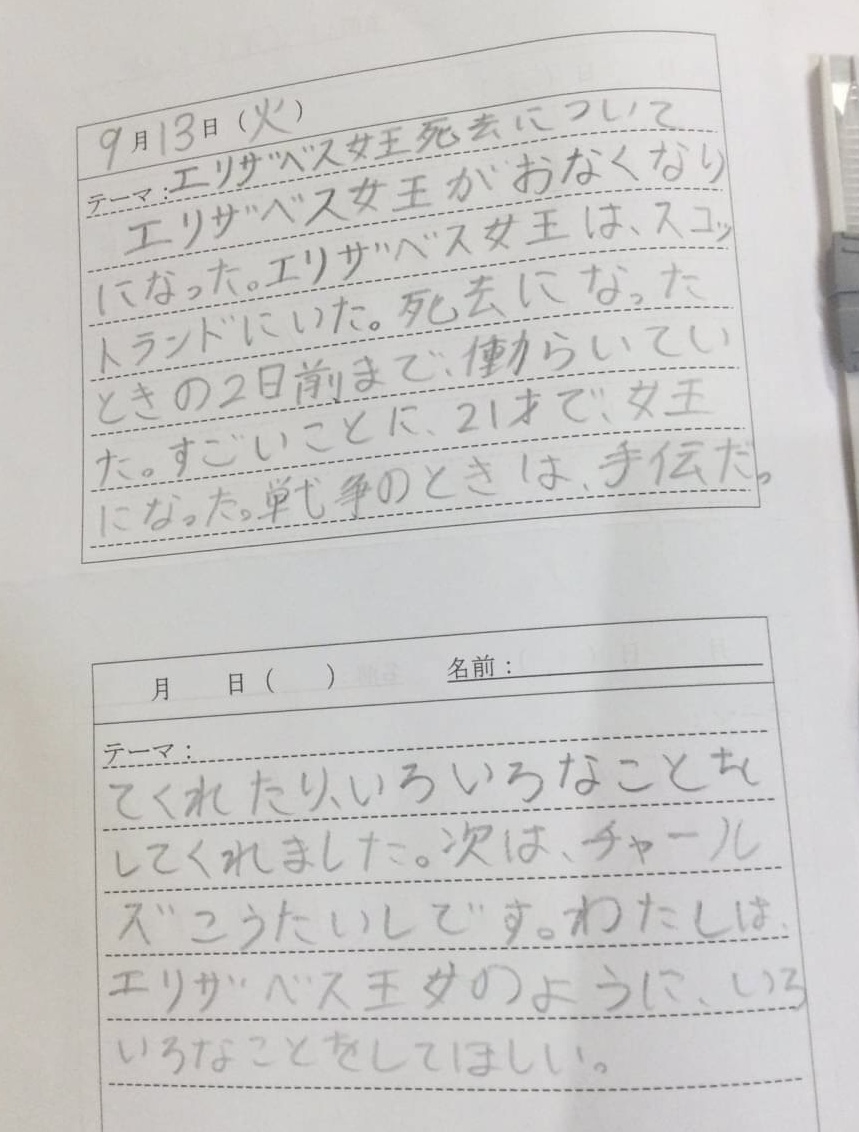 9月13日(火)
テーマ:エリザベス女王死去について
エリザベス女王がおなくなり
になった。エリザベス女王は、スコッ
トランドにいた。死去になった
ときの2日前まで、働らいてい
た。すごいことに、21才で、女王
になった。戦争のときは、手伝だっ
月 日( ) 名前:
テーマ:
てくれたり、いろいろなことを
してくれました。次は、チャール
ズこうたいしです。わたしは、
エリザベス王女のように、いろ
いろなことをしてほしい。